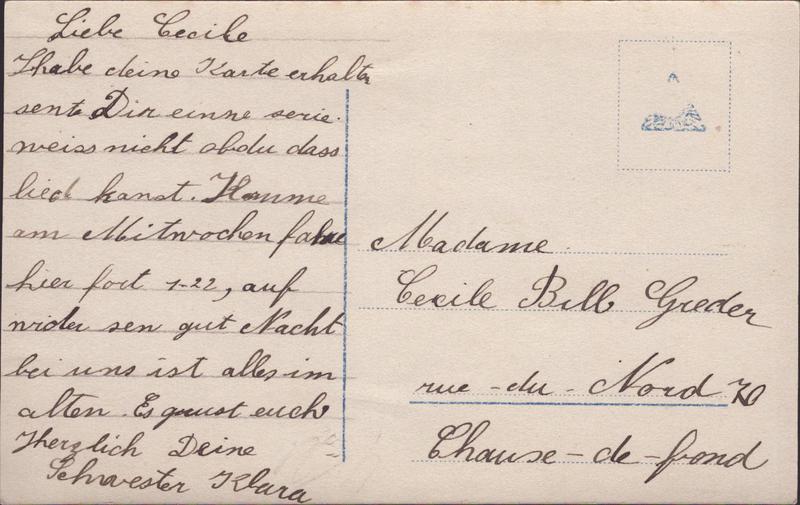 Liebe Cecile
Ihabe deine Karte erhalten
sent Dir einne serie.
weiss nicht obdu dass
lied kanst. Komme
am Mitwochen fahre
hier fort 1-22, auf
wider sen gut Nacht
bei uns ist alles im
alten. Es grust euch
Herzlich Deine
Schwester Klara
Madame
Cecile Bill Greder
rue-du-Nord 70
Chause-de-fond